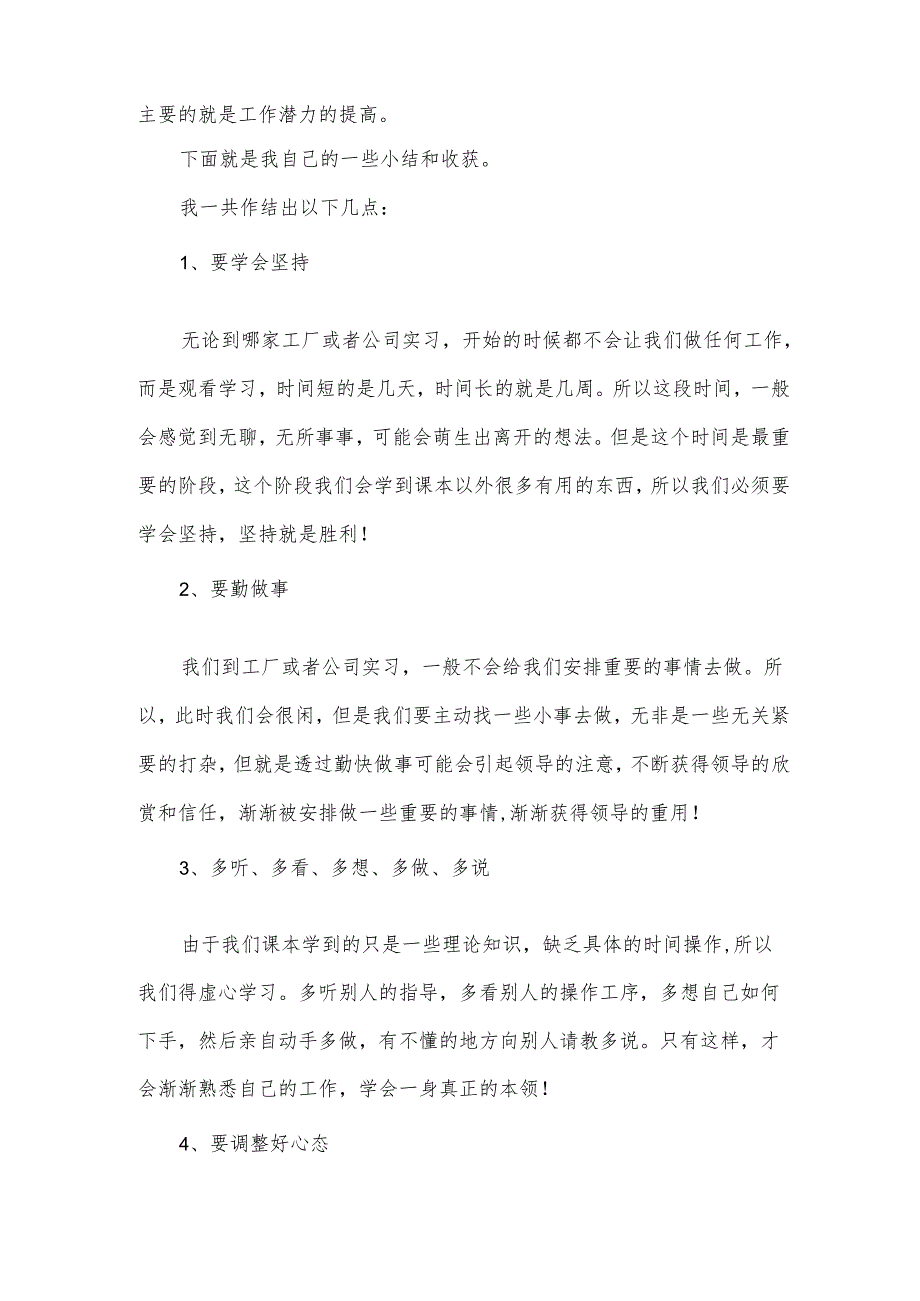 主要的就是工作潜力的提高。
下面就是我自己的一些小结和收获。
我一共作结出以下几点：
1、要学会坚持
无论到哪家工厂或者公司实习，开始的时候都不会让我们做任何工作，
而是观看学习，时间短的是几天，时间长的就是几周。所以这段时间，一般
会感觉到无聊，无所事事，可能会萌生出离开的想法。但是这个时间是最重
要的阶段，这个阶段我们会学到课本以外很多有用的东西，所以我们必须要
学会坚持，坚持就是胜利！
2、要勤做事
我们到工厂或者公司实习，一般不会给我们安排重要的事情去做。所
以，此时我们会很闲，但是我们要主动找一些小事去做，无非是一些无关紧
要的打杂，但就是透过勤快做事可能会引起领导的注意，不断获得领导的欣
赏和信任，渐渐被安排做一些重要的事情,渐渐获得领导的重用！
3、多听、多看、多想、多做、多说
由于我们课本学到的只是一些理论知识，缺乏具体的时间操作,所以
我们得虚心学习。多听别人的指导，多看别人的操作工序，多想自己如何
下手，然后亲自动手多做，有不懂的地方向别人请教多说。只有这样，才
会渐渐熟悉自己的工作，学会一身真正的本领！
4、要调整好心态